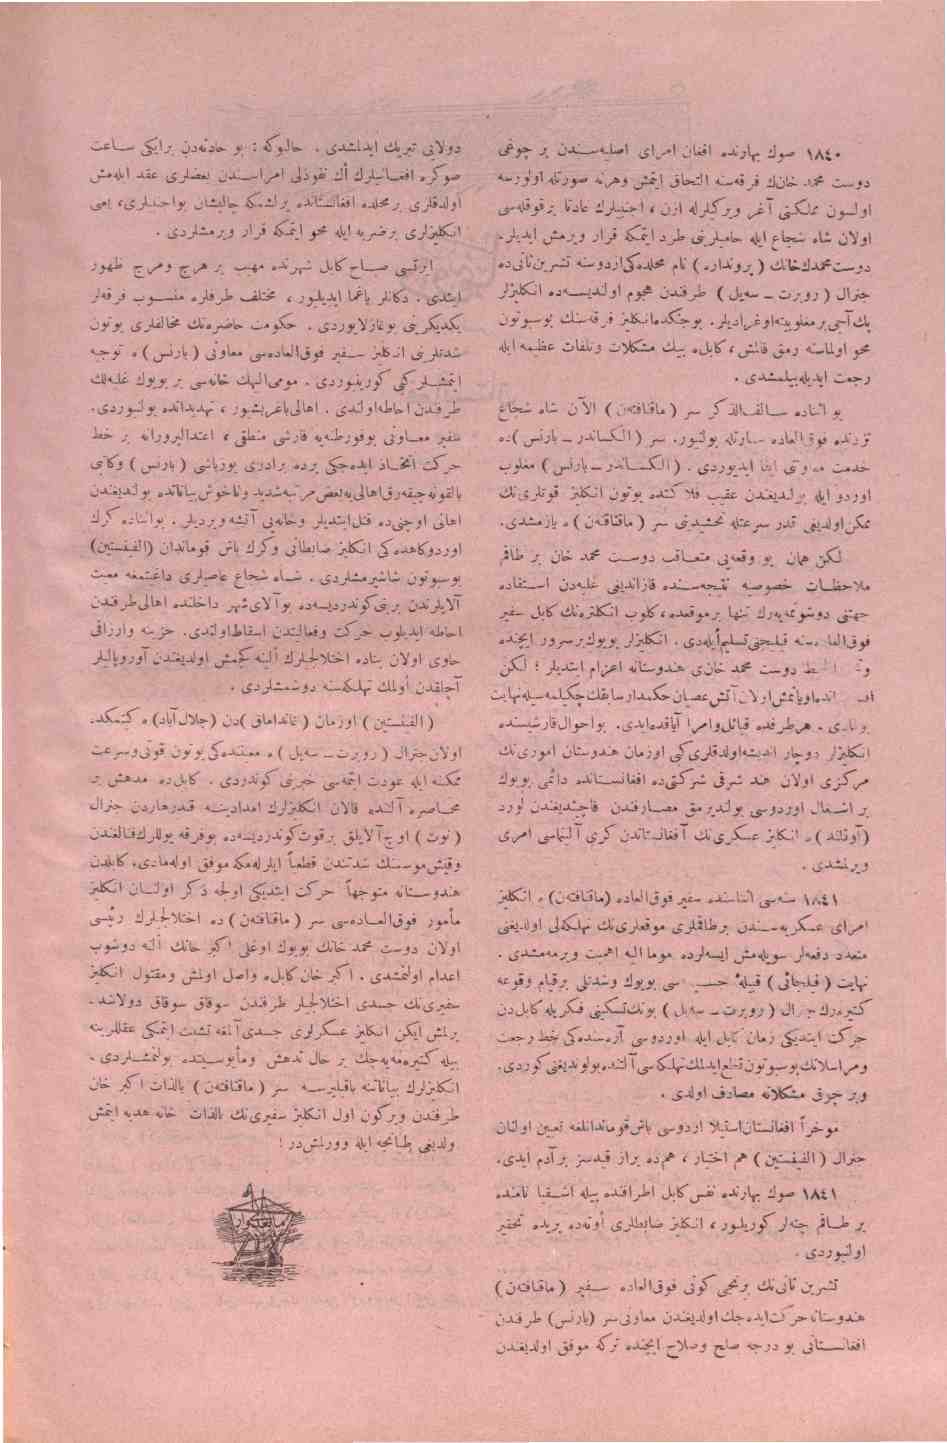 ١٨٤٠ صوك بهارنده افغان امرای اصلیه‌سندن بر چوغی
دوست محمد خانك فرقه‌سنه التحاق ایتمش وهرنه صورتله اولورسه
اولسون مملكتی آغر ویركیلرله ازن ، اجنبیلرك عادتا برقوقله‌سی
اولان شاه شجاع ایله حامیلرینی طرد ایتمكه قرار ویرمش ایدیلر.
دوست محمدخانك ( پرونداره ) نام محلده‌كی اردوسنه تشرین ثانی‌ده
جنرال ( روبرت ــ سه‌یل ) طرفندن هجوم اولندیسه‌ده انكلیزلر
پك آجی بر مغلوبیته اوغرادیلر. بوجنكده انكلیز فرقه‌سنك بوسبوتون
محو اولماسنه رمق قالمش ، كابله بیك مشكلات وتلفات عظیمه ایله
رجعت ایدیله‌بیلمشدی .
بو اثناده سالف‌الذكر سر ( ماقناقتهن ) الآن شاه شجاع
نزدنده فوق‌العاده سفارتله بولنیور. سر ( الكساندر ــ بارنس )ده
خدمت معاونتی ایفا ایدیوردی . ( الكساندر ــ بارنس ) مغلوب
اوردو ایله بولندیغندن عقیب فلاكتده بوتون انكلیز قوتلرینك
ممكن اولدیغی قدر سرعتله تحشیدینی سر ( ماقناقتهن )ه یازمشدی.
لكن همان بو وقعه‌یی متعاقب دوست محمد خان بر طاقم
ملاحظات خصوصیه نتیجه‌سنده قازاندیغی غلبه‌دن استفاده
جهتنی دوشونمه‌یه‌رك تنها برموقعده، كلوب انكلتره‌نك كابل سفیر
فوق‌العاده‌سنه قیلیجنی تسلیم ایله‌دی . انكلیزلر بویوك برسرور ایچنده
دوست محمد خانی هندوستانه اعزام ایتدیلر ؛ لكن
اویانمش اولان آتش عصیان حكمدار سابقك چكیلمه‌سیله نهایت
بولمادی . هرطرفده قبائل وامرا آیاقده‌ایدی. بو احوال قارشیسنده
انكلیزلر دوچار اندیشه اولدقلری كبی اوزمان هندوستان امورینك
مركزی اولان هند شرقی شركتی‌ده افغانستانده دائمی بویوك
بر اشغال اوردوسی بولندیرمق مصارفندن قاچندیغندن لورد
( آوقلند )ه انكلیز عسكرینك آفغانستاندن كری آلنماسی امری
ویرلمشدی .
١٨٤١ سنه‌سی اثناسنده سفیر فوق‌العاده (ماقناقتهن)ه انكلیز
امرای عسكریه‌سندن برطاقملری موقعلرینك تهلكه‌لی اولدیغنی
متعدد دفعه‌لر سویله‌مش ایسه‌لرده مومالیه اهمیت ویرمه‌مشدی .
نهایت ( قیلجائی ) قبیله‌ٔ جسیمه‌سی بویوك وشدتلی برقیام وقوعه
كتیره‌رك جنرال ( روبرت ــ سه‌یل ) بونك تسكینی فكریله كابل‌دن
حركت ایتدیكی زمان كابل ایله اوردوسی آره‌سنده‌كی خط رجعت
ومراسلاتك بوسبوتون قطع ایدلمك تهلكه‌سی آلتنده بولوندیغنی كوردی.
وبر چوق مشكلاته مصادف اولدی .
موخراً افغانستان استیلا اردوسی باش قومانداناغنه تعیین اولنان
جنرال ( الفیفستین ) هم اختیار ، هم‌ده براز قیدسز برآدم ایدی.
١٨٤١ صوك بهارنده نفس كابل اطرافنده بیله اشقیا نامنده
بر طاقم چته‌لر كوریلیور ، انكلیز ضابطلری اوته‌ده بریده تحقیر
اولنیوردی .
تشرین ثانی‌نك برنجی كونی فوق‌العاده سفیر ( ماقناقتهن )
هندوستانه حركت ایده‌جك اولدیغندن معاونی سر (بارنس) طرفندن
افغانستانی بو درجه صلح وصلاح ایچنده تركه موفق اولدیغندن
دولایی تبریك ایدلمشدی . حالبوكه : بو حادثه‌دن برایكی ساعت
صوكره افغانیلرك اك نفوذلی امراسندن بعضلری عقد ایله‌مش
اولدقلری بر مجلسده افغانستانده یرلشمكه چالیشان بواجنبیلری، یعنی
انكلیزلری برضربه ایله محو ایتمكه قرار ویرمشلردی .
ایرتسی صباح كابل شهرنده مهیب بر هرج ومرج ظهور
ایتدی . دكانلر یاغما ایدیلیور ، مختلف طرفلره منسوب فرقه‌لر
یكدیكرینی بوغازلایوردی . حكومت حاضره‌نك مخالفلری بوتون
شدتلرینی انكلیز سفیر فوق‌العاده‌سی معاونی ( بارنس )ه توجیه
ایتمشلر كبی كورینیوردی . مومی‌الیهك خانه‌سی بر بویوك غلبه‌لك
طرفندن احاطه اولندی . اهالی باغریشیور ، تهدیداتده بولنیوردی.
سفیر معاونی بوفورطنه‌یه قارشی منطقی ، اعتدالپرورانه بر خط
حركت اتخاذ ایده‌جكی یرده برادری یوزباشی ( بارنس ) وكاتبی
بالقونه چیقه‌رق اهالی‌یه بعض مرتبه شدید وناخوش بیاناتده بولندیغندن
اهالی اوچنی‌ده قتل ایتدیلر وخانه‌یی آتشه ویردیلر . بواثناده كرك
اوردوكاهده‌كی انكلیز ضابطانی وكرك باش قوماندان (الفیفستین)
بوسبوتون شاشیرمشلردی . شاه شجاع عاصیلری داغیتمغه معیت
آلایلرندن برینی كوندردیسه‌ده بوآلای شهر داخلنده اهالی طرفندن
احاطه ایدیلوب حركت وفعالیتدن اسقاط اولندی. خزینه وارزاقی
حاوی اولان بناده اختلالجیلرك الینه كچمش اولدیغندن آوروپالیلر
آچلقدن اولمك تهلكه‌سنه دوشمشلردی .
( الفیفستین ) اوزمان ( غانداماق )دن (جلال‌آباد)ه كیتمكده
اولان جنرال ( روبرت ــ سه‌یل )ه معیتنده‌كی بوتون قوتی وسرعت
ممكنه ایله عودت ایتمه‌سی خبرینی كوندردی . كابل‌ده مدهش بر
محاصره آلتنده قالان انكلیزلرك امدادینه قندهاردن جنرال
( نوت ) اوچ آلایلق برقوت كوندردیسه‌ده بوفرقه یوللرك فنالغندن
وقیش موسمنك شدتندن قطعاً ایلرله‌مكه موفق اوله‌مادی. كابلدن
هندوستانه متوجهاً حركت ایتدیكی اولجه ذكر اولنان انكلیز
مأمور فوق‌العاده‌سی سر ( ماقناقتهن )ده اختلالجیلرك رئیسی
اولان دوست محمد خانك بویوك اوغلی اكبر خانك الینه دوشوب
اعدام اولنمشدی . اكبر خان كابله واصل اولمش ومقتول انكلیز
سفیرینك جسدی اختلالجیلر طرفندن سوقاق سوقاق دولاشدیرلمش
ایكن انكلیز عسكرلری جسدی آلمغه تشبث ایتمكی عقللرینه
بیله كتیره‌مه‌یه‌جك بر حال تدهش ومأیوسیتده بولنمشلردی .
انكلیزلرك بیاناتنه باقیلیرسه سر ( ماقناقتهن ) بالذات اكبر خان
طرفندن وبركون اول انكلیز سفیرینك بالذات خانه هدیه ایتمش
اولدیغی طبانجه ایله وورلمش‌در !